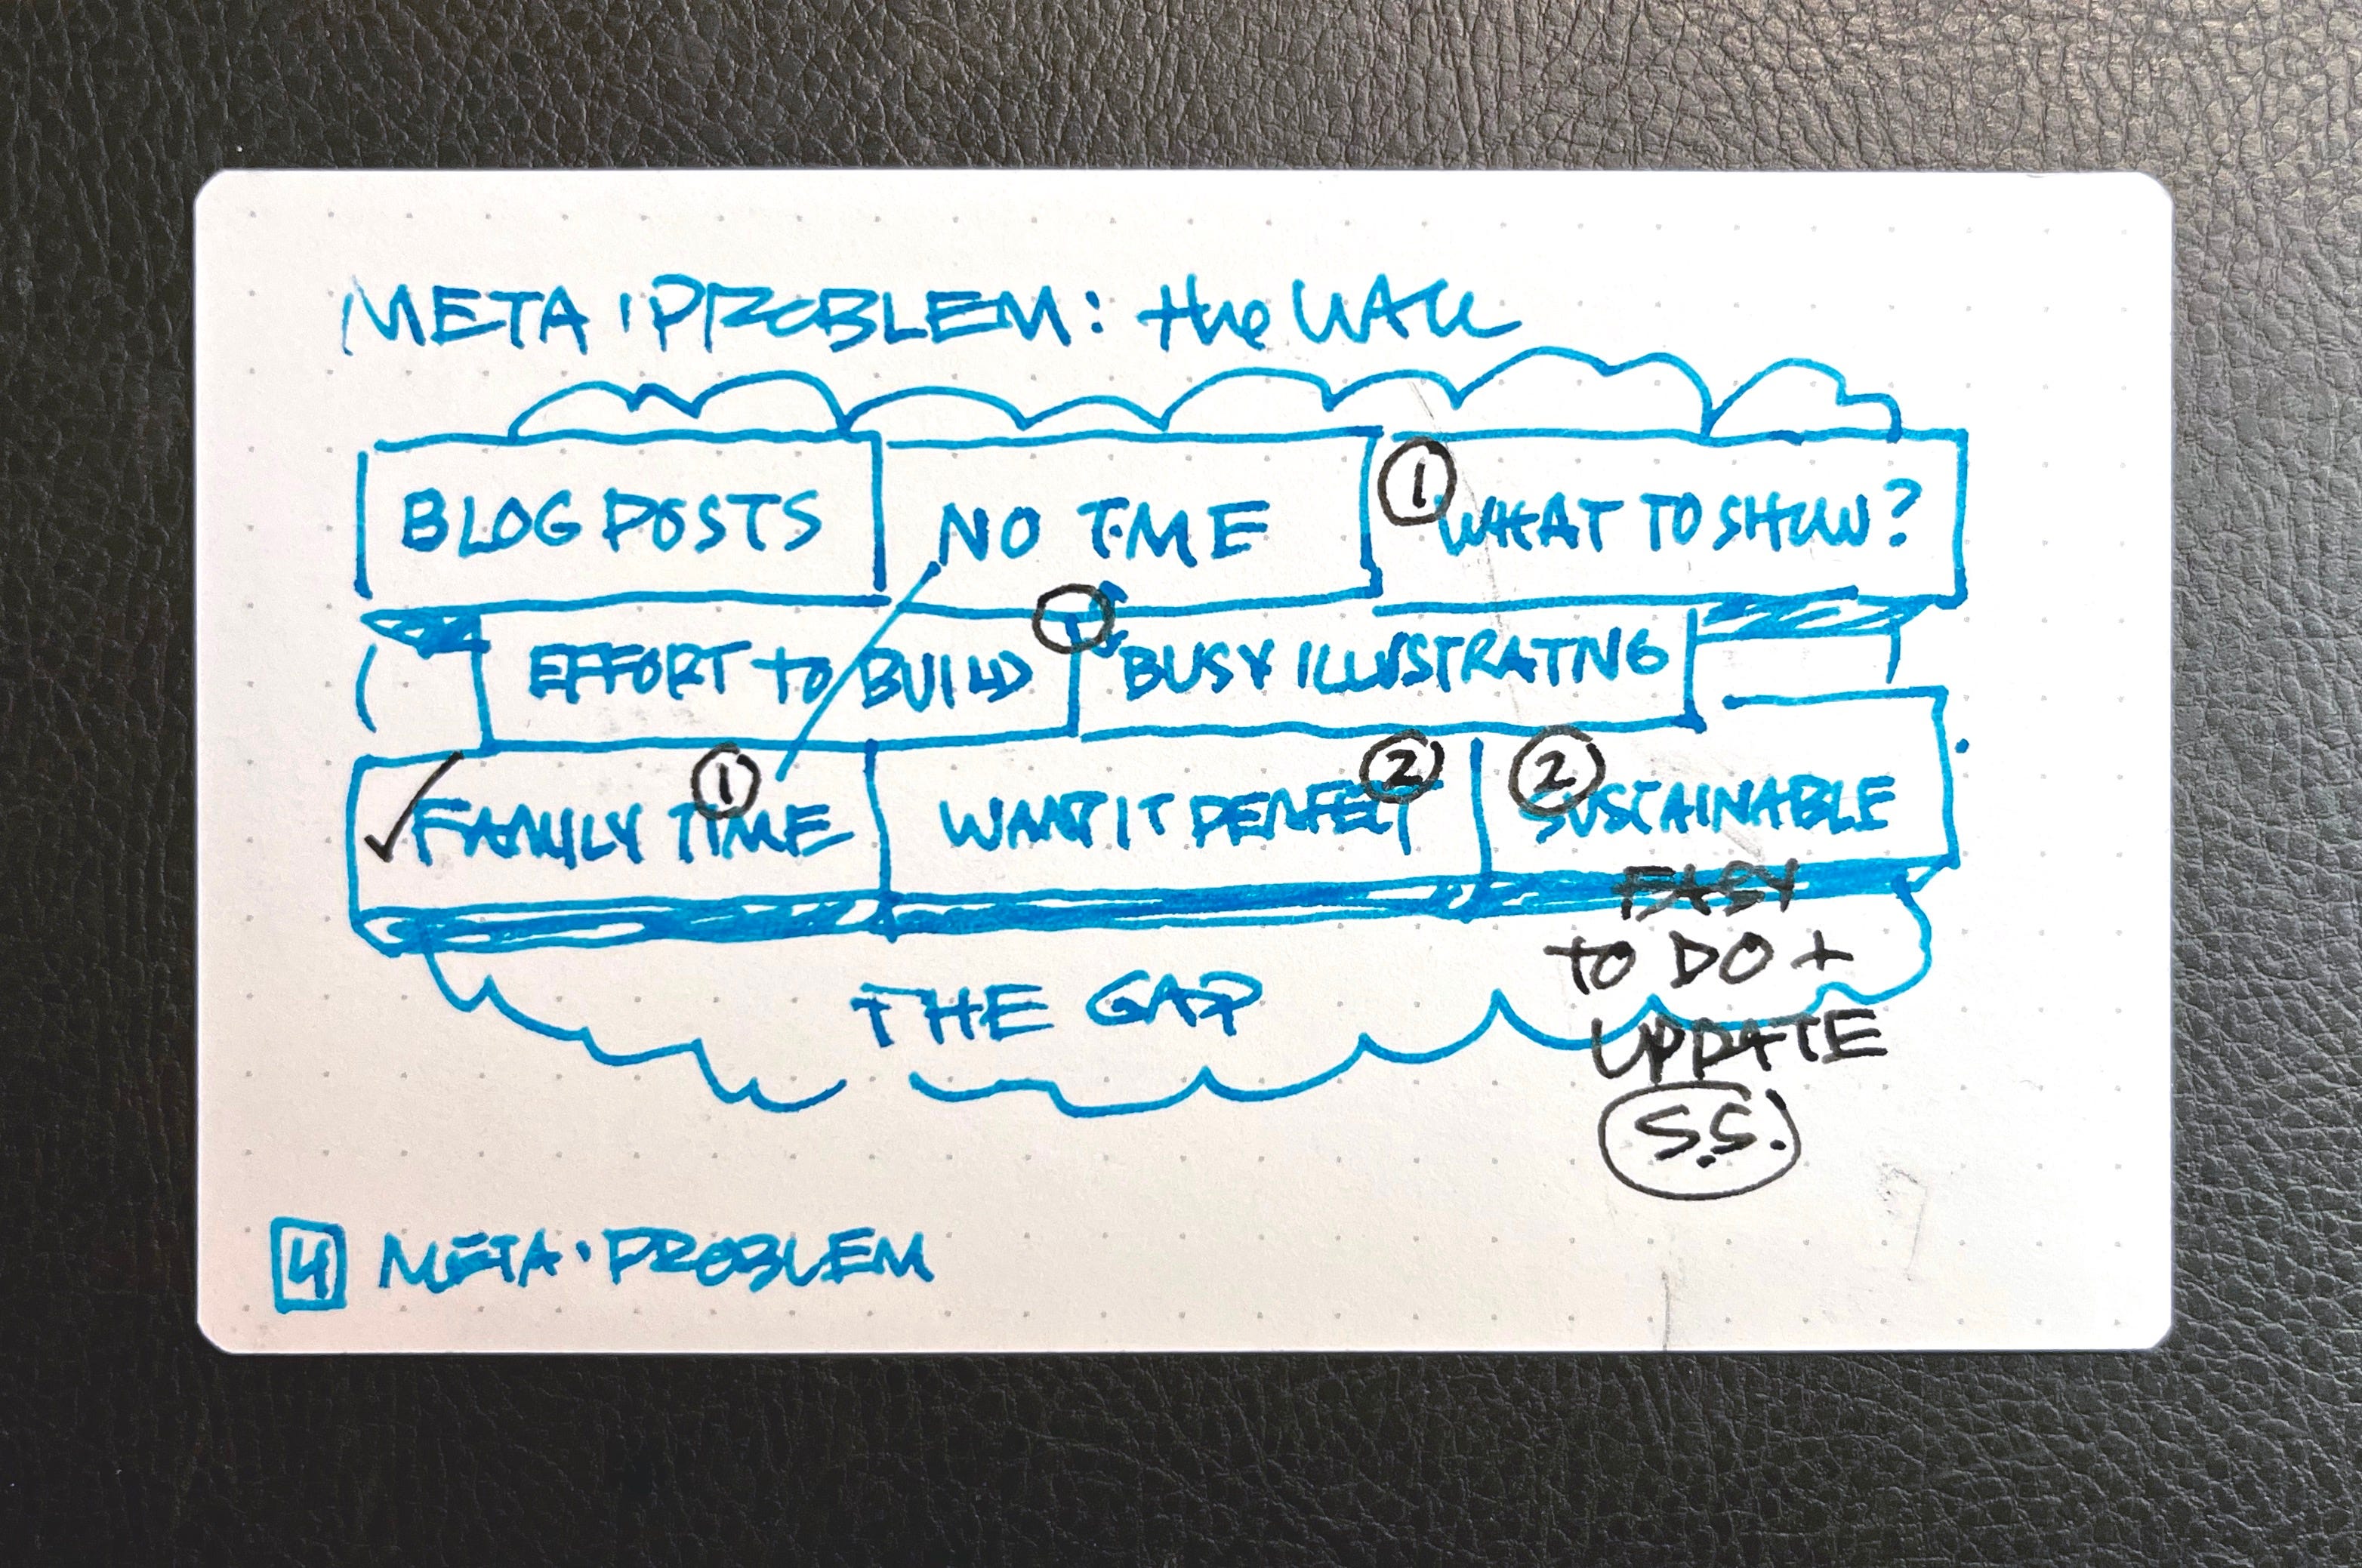 META·PROBLEM: the WALL
BLOG POSTS
NO TIME
1
WHAT TO SHOW?
EFFORT to BUILD
BUSY ILLUSTRATING
✓ FAMILY TIME
1
WANT IT PERFECT
2
2
SUSTAINABLE
EASY
TO DO +
UPDATE
S.S.
THE GAP
4 META·PROBLEM